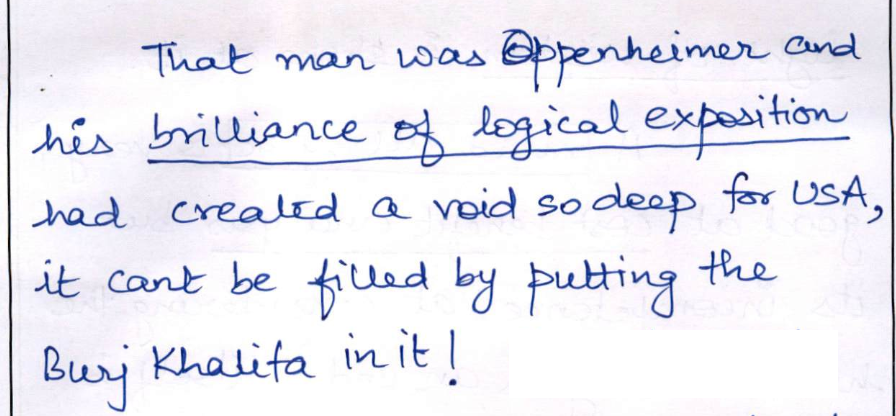 That man was Oppenheimer and
his brilliance of logical exposition
had created a void so deep for USA,
it cant be filled by putting the
Burj Khalifa in it!